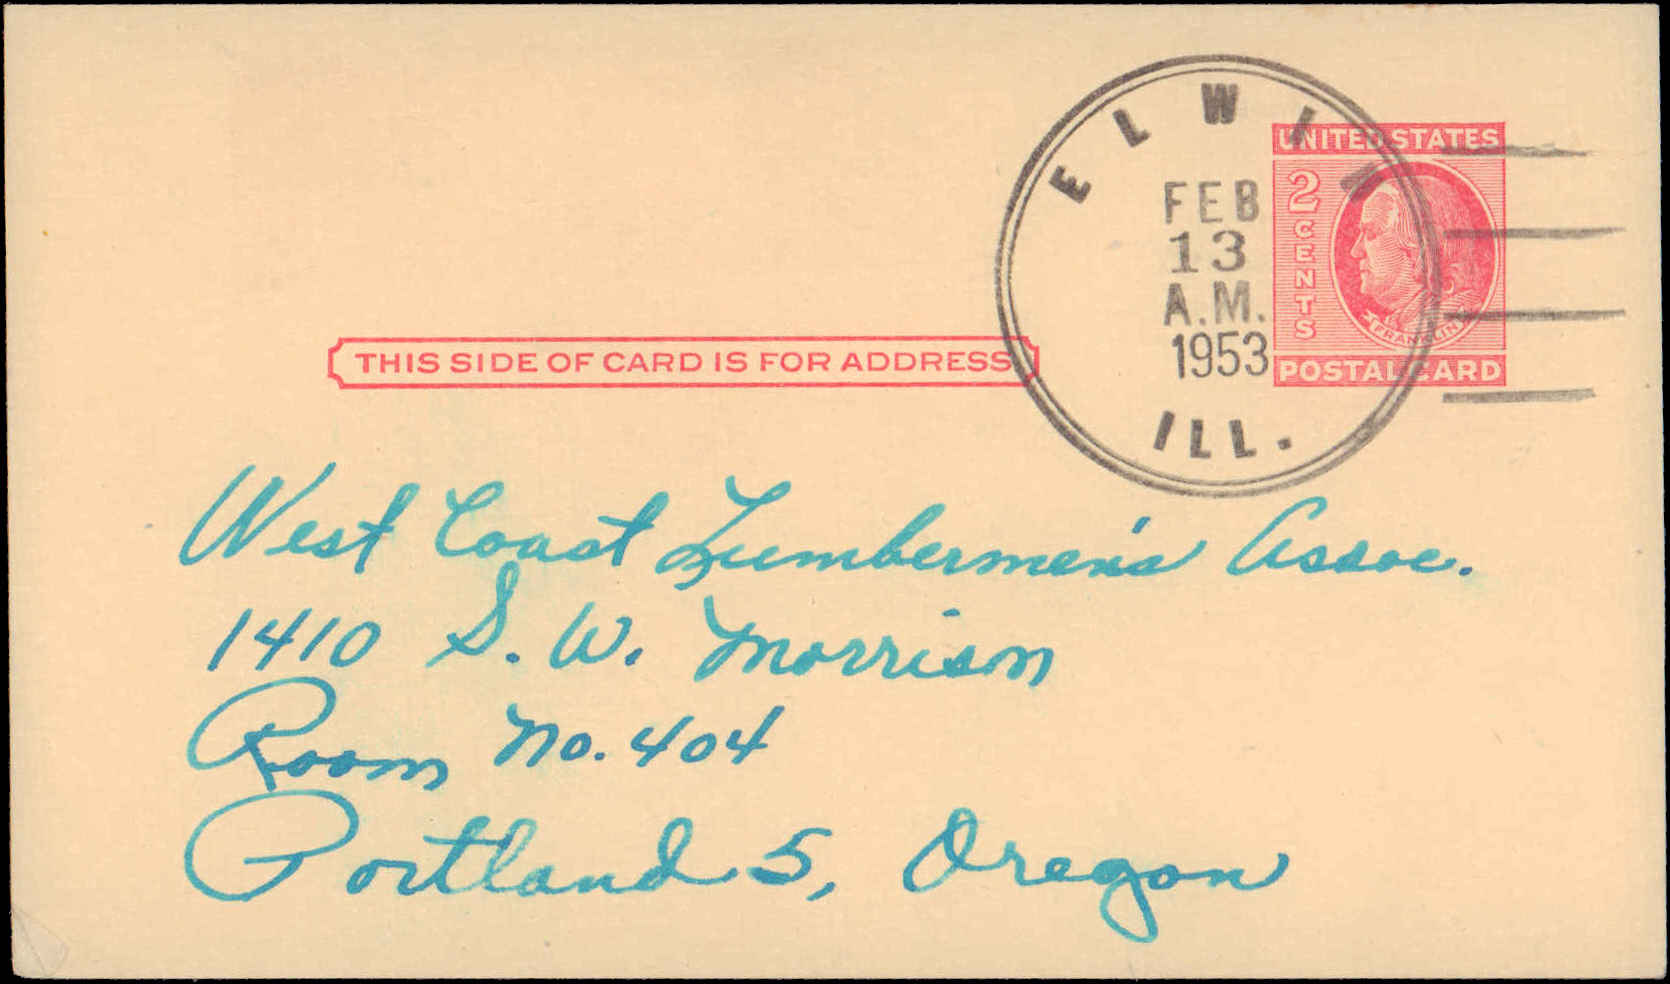 ELWIN
FEB
13
A.M.
1953
ILL.
UNITED STATES
2 CENTS
FRANKLIN
POSTAL CARD
THIS SIDE OF CARD IS FOR ADDRESS
West Coast Lumbermen's Assoc.
1410 S. W. Morrison
Room No. 404
Portland 5, Oregon